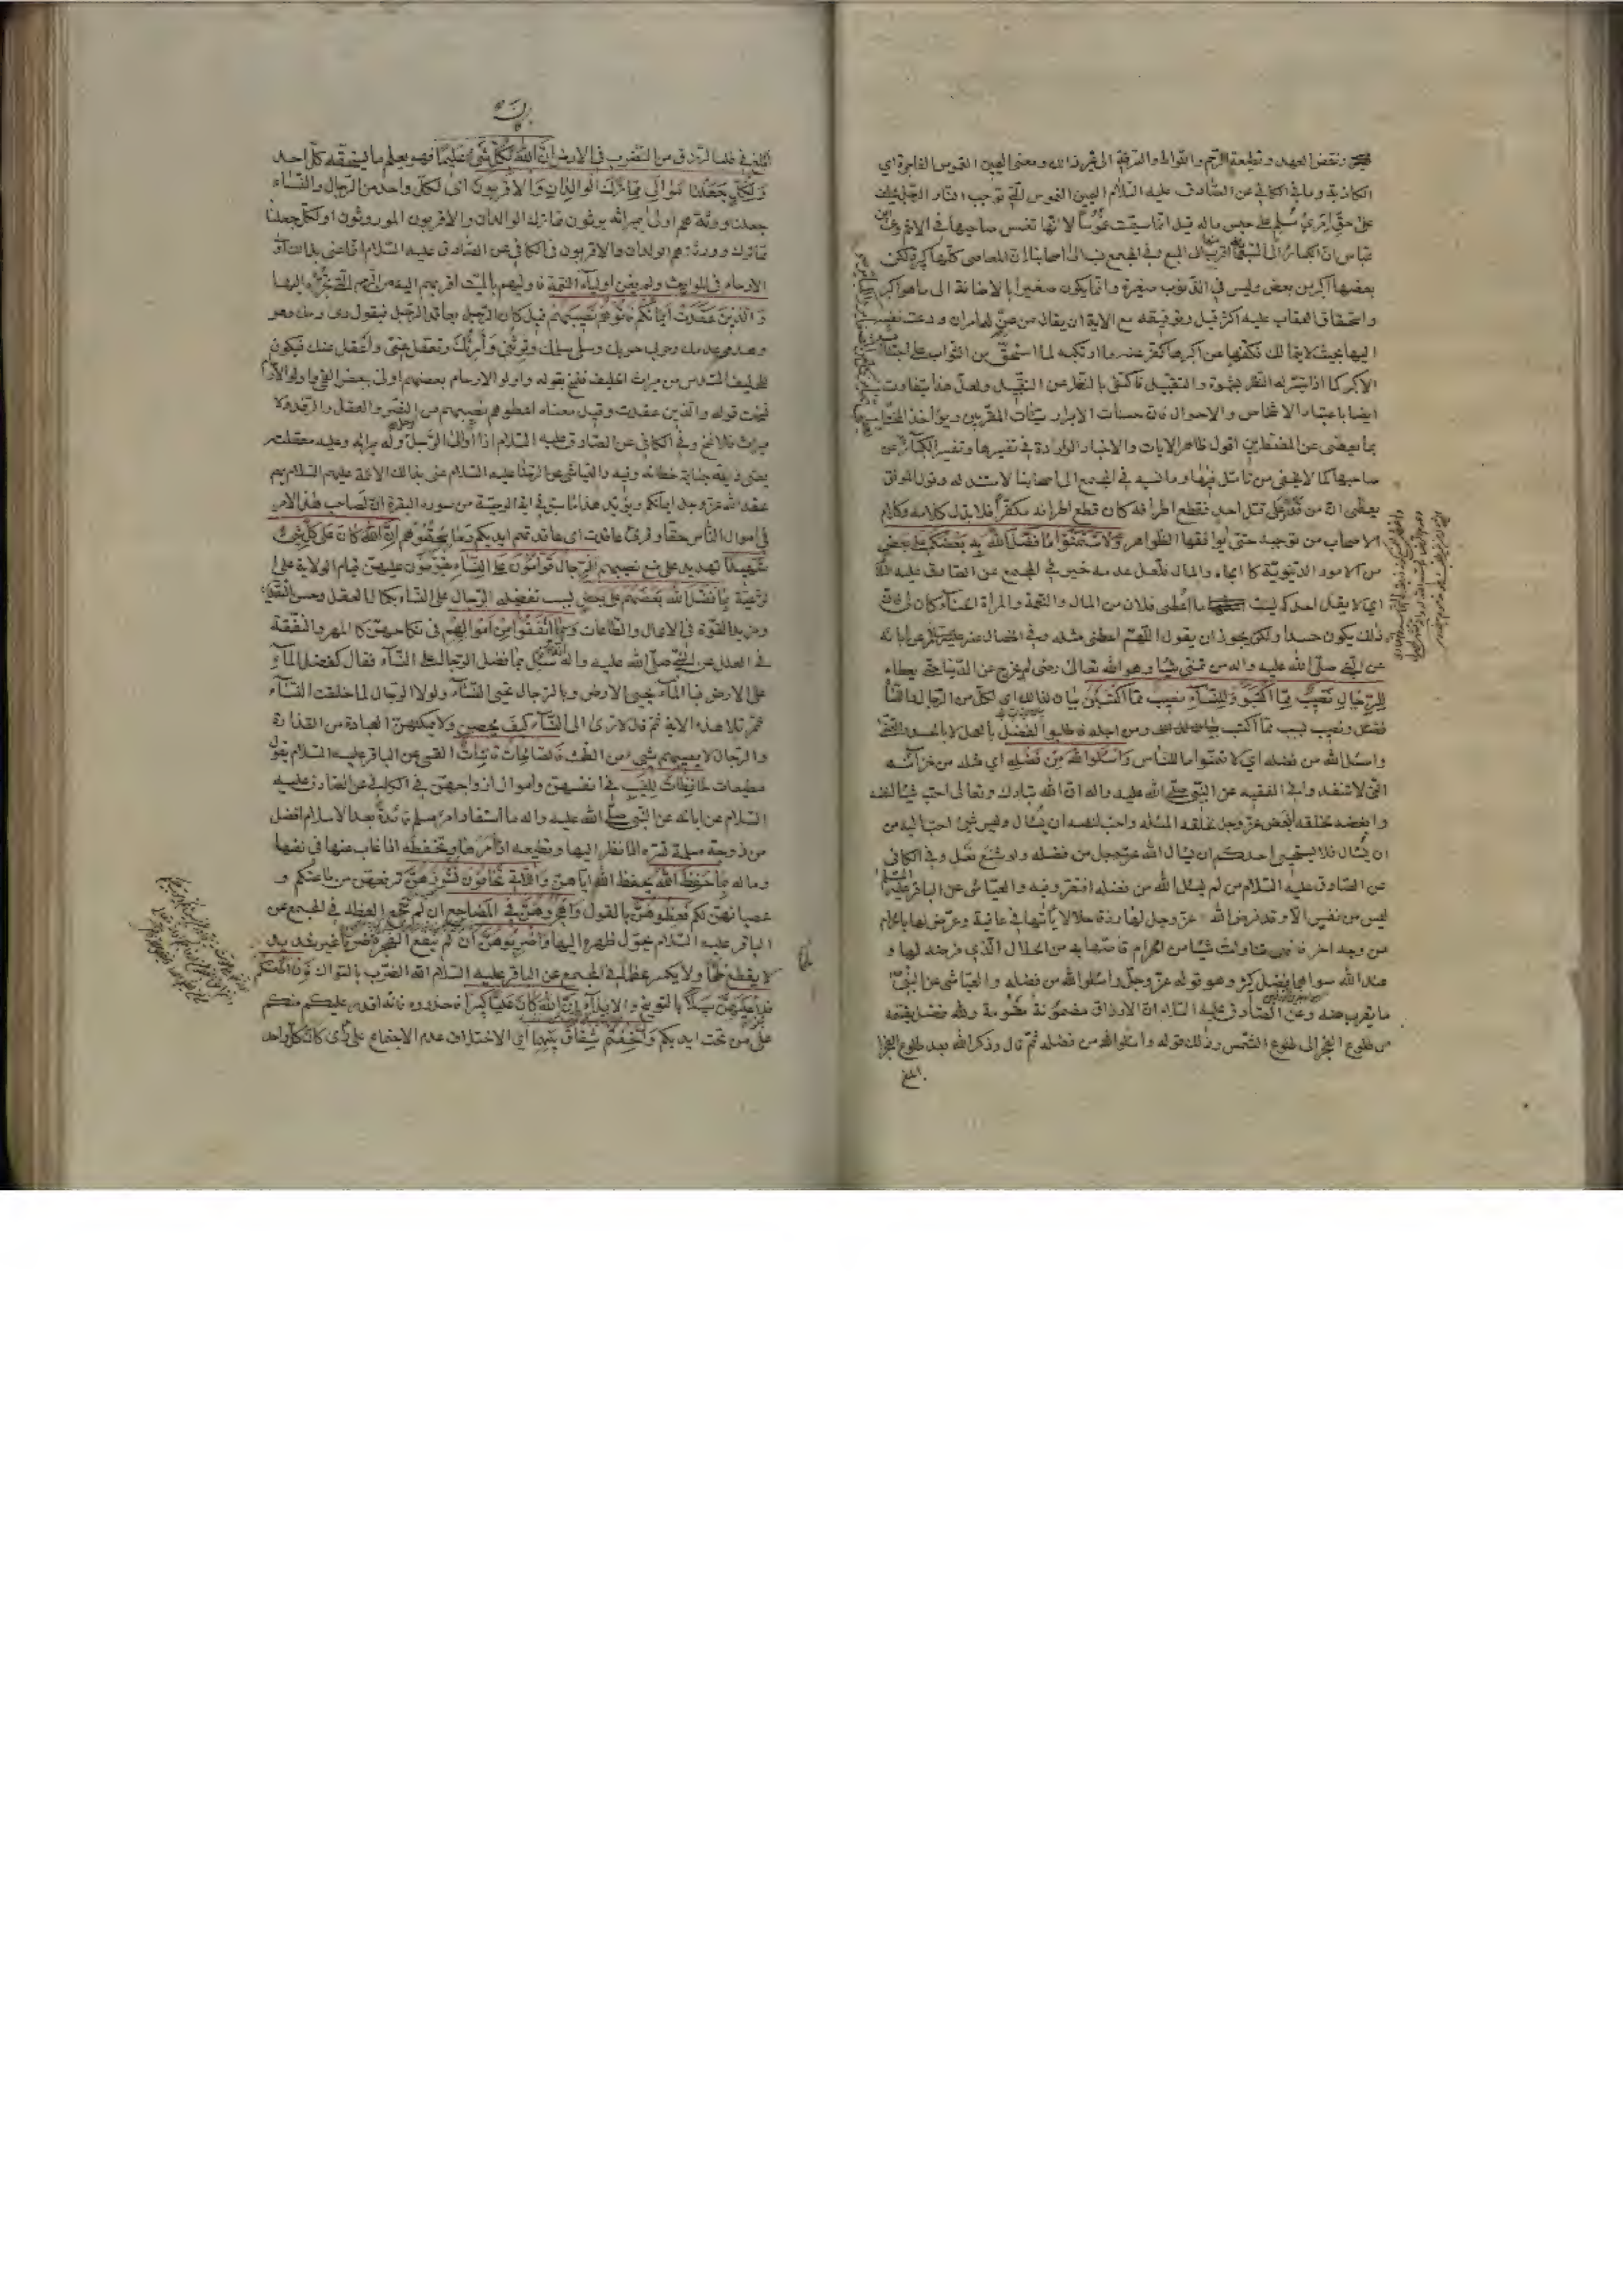 ونقض العهد وقطيعة الرحم واللواط والسرقة الى غير ذلك ومعنى اليمين الغموس الفاجرة اى
الكاذبة وما فى الكافى عن الصادق عليه السلام اليمين الغموس التى توجب النار الرجل يحلف
على حق امرئ مسلم على حبس ماله قيل انما سميت غموسا لانها تغمس صاحبها فى الاثم وعن ابن
عباس ان الكبائر الى السبعمائة اقرب منها الى السبع وفى المجمع نسب الى اصحابنا ان المعاصى كلها كبيرة لكن
بعضها اكبر من بعض وليس فى الذنوب صغيرة وانما يكون صغيرا بالاضافة الى ما هو اكبر
واستحقاق العقاب عليه اكثر قيل وتوفيقه مع الاية ان يقال من عن له امران ودعت نفسه
اليها بحيث لا يتمالك فكفها عن اكبرهما كفر عنه ما ارتكبه لما استحق من الثواب على اجتناب
الاكبر كما اذا تيسر له النظر بشهوة والتقبيل فاكتفى بالنظر عن التقبيل ولعل هذا يتفاوت
ايضا باعتبار الاشخاص والاحوال فان حسنات الابرار سيئات المقربين ويؤاخذ المختار
بما يعفى عن المضطرين اقول ظاهر الايات والاخبار الواردة فى تفسيرها وتفسير الكبائر عن
صاحبها كما لا يخفى من تأمل فيها وما نسبه فى المجمع الى اصحابنا لا مستند له وقول الموفق
يعطى ان من قدر على قتل احد فقطع اطرافه كان قطع اطرافه مكفرا فلا بد لكلامه وكلام
الاصحاب من توجيه حتى يوافقها الظواهر ولا تتمنوا ما فضل الله به بعضكم على بعض
من الامور الدنيوية كالجاه والمال فلعل عدمه خير فى المجمع عن الصادق عليه السلام
اى لا يقل احدكم ليت ما اعطى فلان من المال والنعمة والمرأة الحسناء كان لى فان
ذلك يكون حسدا ولكن يجوز ان يقول اللهم اعطنى مثله وفى الخصال عنه عن ابائه
عن النبى صلى الله عليه واله من تمنى شيئا وهو لله تعالى رضى لم يخرج من الدنيا حتى يعطاه
للرجال نصيب مما اكتسبوا وللنساء نصيب مما اكتسبن بيان لذلك اى لكل من الرجال والنساء
فضل ونصيب بسبب ما اكتسب ومن اجله فاطلبوا الفضل بالعمل لا بالحسد والتمنى
واسئلوا الله من فضله اى لا تتمنوا ما للناس واسئلوا الله من فضله اى مثله من خزائنه
التى لا تنفد وفى الفقيه عن النبى صلى الله عليه واله ان الله تبارك وتعالى احب شيئا لنفسه
وابغضه لخلقه ابغض عز وجل لخلقه المسئلة واحب لنفسه ان يسئال وليس شئ احب اليه من
ان يسئال فلا يستحيى احدكم ان يسئال الله عز وجل من فضله ولو شسع نعل وفى الكافى
عن الصادق عليه السلام من لم يسئل الله من فضله افتقر وفيه والعياشى عن الباقر عليه السلام
ليس من نفس الا وقد فرض الله عز وجل لها رزقا حلالا يأتيها فى عافية وعرض لها بالحرام
من وجه اخر فان هى تناولت شيئا من الحرام قاصها به من الحلال الذى فرض لها و
عند الله سواهما فضل كثير وهو قوله عز وجل واسئلوا الله من فضله والعياشى عن النبى
ما يقرب منه وعن الصادق عليه السلام ان الارزاق مضمونة مقسومة ولله فضل يقسمه
من طلوع الفجر الى طلوع الشمس وذلك قوله واسئلوا الله من فضله ثم قال وذكر الله بعد طلوع الفجر
ابلغ
ابلغ فى طلب الرزق من الضرب فى الارض ان الله كان بكل شئ عليما فهو يعلم ما يستحقه كل احد
ولكل جعلنا موالى مما ترك الوالدان والاقربون اى لكل واحد من الرجال والنساء
جعلنا ورثة هم اولى بميراثه يرثون مما ترك الوالدان والاقربون الموروثون او لكل جعلنا
مما ترك ورثة هم الوالدان والاقربون فى الكافى عن الصادق عليه السلام انما عنى بذلك اولو
الارحام فى المواريث ولم يعن اولياء النعمة فاوليهم بالميت اقربهم اليه من الرحم التى تجره اليها
والذين عقدت ايمانكم فاتوهم نصيبهم قيل كان الرجل يعاقد الرجل فيقول دمى دمك وهدمى
هدمك وحربى حربك وسلمى سلمك وترثنى وارثك وتعقل عنى واعقل عنك فيكون
للحليف السدس من ميراث الحليف فنسخ بقوله واولو الارحام بعضهم اولى ببعض
قوله والذين عقدت وقيل معناه اعطوهم نصيبهم من النصر والعقل والرفد ولا
ميراث فلا نسخ وفى الكافى عن الصادق عليه السلام اذا والى الرجل الرجل فله ميراثه وعليه معقلته
يعنى دية جناية خطائه وفيه والعياشى عن الرضا عليه السلام عنى بذلك الائمة عليهم السلام بهم
عقد الله عز وجل ايمانكم ويؤيد هذا ما سبق فى اية الوصية من سورة البقرة ان لصاحب هذا الامر
فى اموال الناس حقا وقرئ عاقدت اى عاقدتهم ايديكم وماسحتموهم ان الله كان على كل شئ
شهيدا تهديد على منع نصيبهم الرجال قوامون على النساء يقومون عليهن قيام الولاة على
الرعية بما فضل الله بعضهم على بعض بسبب تفضيله الرجال على النساء بكمال العقل وحسن التدبير
ومزيد القوة فى الاعمال والطاعات وبما انفقوا من اموالهم فى نكاحهن كالمهر والنفقة
فى العلل عن النبى صلى الله عليه واله سئل ما فضل الرجال على النساء فقال كفضل الماء
على الارض فبالماء يحيى الارض وبالرجال تحيى النساء ولولا الرجال لما خلقت النساء
ثم تلا هذه الاية ثم قال الا ترى الى النساء كيف يحضن ولا يمكنهن العبادة من القذارة
والرجال لا يصيبهم شئ من الطمث فالصالحات قانتات القمى عن الباقر عليه السلام يقول
مطيعات حافظات للغيب فى انفسهن واموال ازواجهن فى الكافى عن الصادق عليه
السلام عن ابائه عن النبى صلى الله عليه واله ما استفاد امرء مسلم فائدة بعد الاسلام افضل
من زوجة مسلمة تسره اذا نظر اليها وتطيعه اذا امرها وتحفظه اذا غاب عنها فى نفسها
وماله بما حفظ الله بحفظ الله اياهن واللاتى تخافون نشوزهن ترفعهن من طاعتكم و
عصيانهن لكم فعظوهن بالقول واهجروهن فى المضاجع ان لم تنجع العظة فى المجمع عن
الباقر عليه السلام يحول ظهره اليها واضربوهن ان لم تنفع الهجرة ضربا غير شديد
لا يقطع لحما ولا يكسر عظما فى المجمع عن الباقر عليه السلام انه الضرب بالسواك فان اطعنكم
فلا تبغوا عليهن سبيلا بالتوبيخ والايذاء ان الله كان عليا كبيرا فاحذروه فانه اقدر عليكم منكم
على من تحت ايديكم وان خفتم شقاق بينهما اى الاختلاف عدم الاجتماع على رأى كان كل واحد